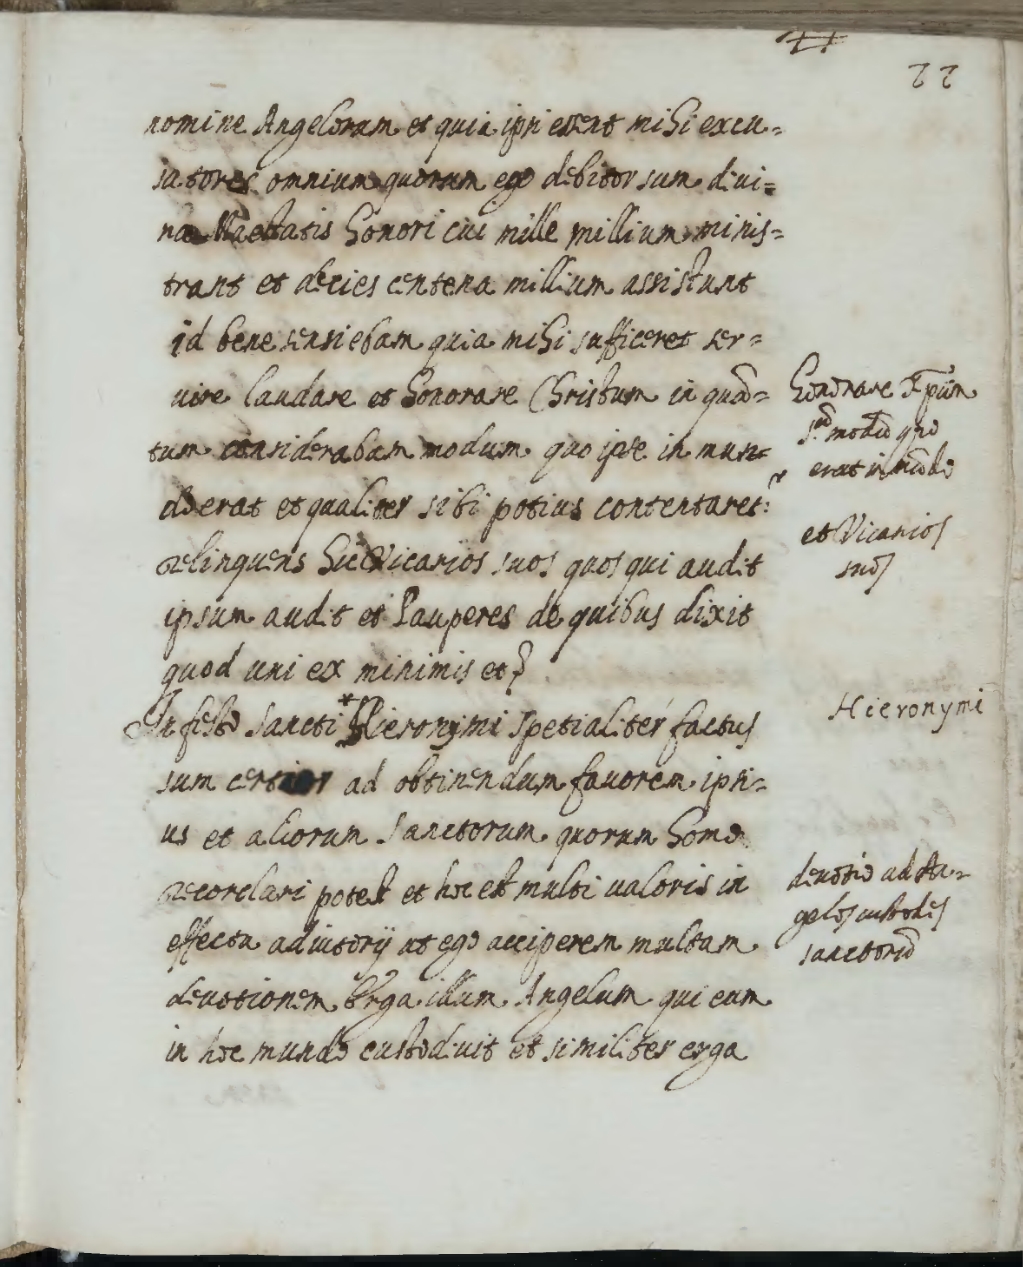 22
nomine Angelorum et quia ipsi essent mihi excu=
satores omnium quorum ego debitor sum diui=
næ Maestatis honori cui mille millium minis=
trant et decies centena millium assistunt
id bene sensiebam quia mihi sufficeret ser=
uire laudare et honorare Christum in quā=
tum considerabam modum quo ipse in mun=
do erat et qualiter sibi potius contentaret.r
relinquens hic Vicarios suos quos qui audit
ipsum audit et Pauperes de quibus dixit
quod uni ex minimis et?
In festo sancti *Hieronymi spetialiter factus
sum certior ad obtinendum fauorem ipsi=
us et aliorum Sanctorum quorum homo
recordari potest et hoc est multi ualoris in
effectu adiutorij ut ego acciperem multam
deuotionem Erga illum Angelum qui eum
in hoc mundo custodiuit et similiter erga
honorare Xpūm
modū quo
erat in mūdo
et Vicarios
suos
Hieronymi
deuotio ad An=
gelos custodes
sanctorū